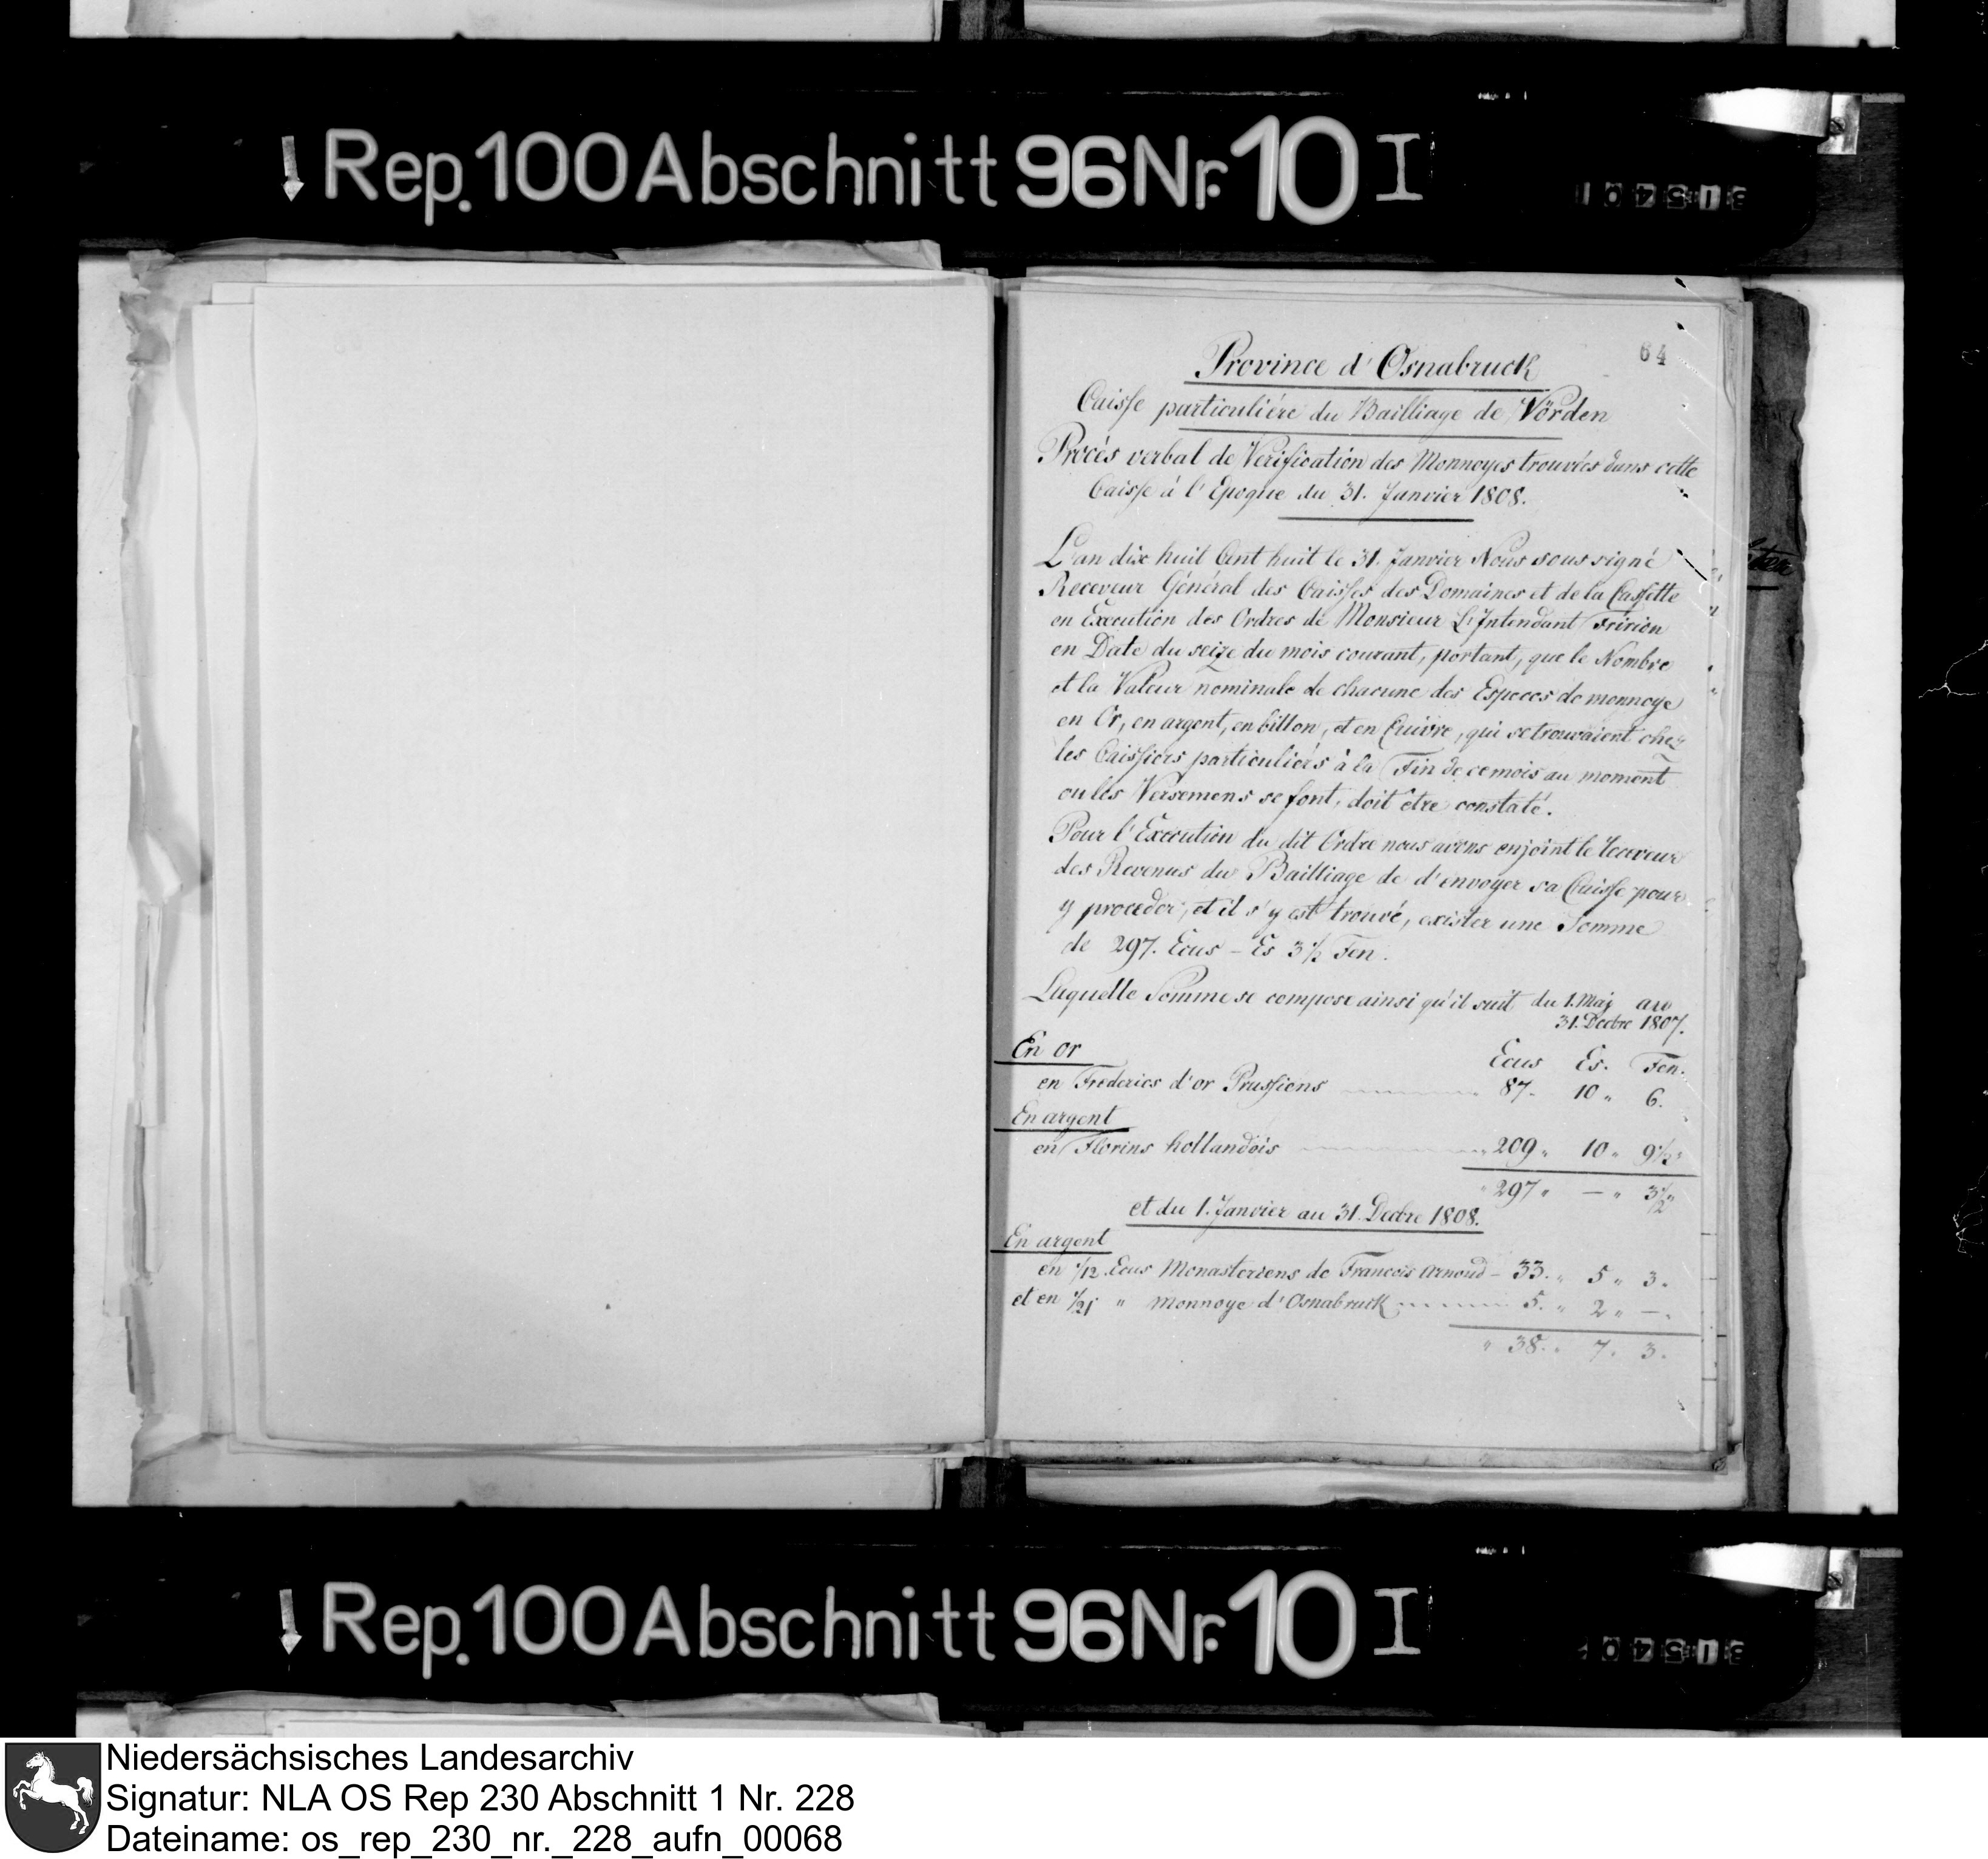 Rep. 100 Abschnitt 96 Nr. 10 I
64
Province d'Osnabruck
Caisse particuliére du Bailliage de Vörden
Procés verbal de Verification des Monnoyes trouvées dans cette
Caisse à l'Epoque du 31. Janvier 1808.
L'an dix huit Cent huit le 31. Janvier Nous sous signé
Receveur Général des Caisses des Domaines et de la Cassette
en Execution des Ordres de Monsieur L'Intendant Fririon
en Date du seize du mois courant, portant, que le Nombre
et la Valeur nominale de chacune des Especes de monnoye
en Or, en argent, en billon, et en Cuivre, qui se trouvaient chez
les Caissiers particuliérs à la Fin de ce mois au moment
ou les Versemens se font, doit être constaté.
Pour l'Execution du dit Ordre nous avons enjoint le receveur
des Revenus du Bailliage de d'envoyer sa Caisse pour
y proceder, et il s'y est trouvé, exister une Somme
de 297. Ecus – Es 3 1/2 Fen.
Laquelle Somme se compose ainsi qu'il suit du 1. Maj au
31. Decbre 1807.
En or
Ecus Es. Fen.
en Frederics d'or Prussiens 87. 10 " 6.
En argent
en Florins hollandois 209 " 10 " 9 1/2 "
" 297 " – " 3 1/2 "
et du 1. Janvier au 31. Decbre 1808.
En argent
en 1/12 Ecus Monasteriens de Francois Arnoud – 33. " 5 " 3.
et en 1/21 " monnoye d'Osnabruck 5. " 2 " – .
" 38. " 7. 3.
Rep. 100 Abschnitt 96 Nr. 10 I
Niedersächsisches Landesarchiv
Signatur: NLA OS Rep 230 Abschnitt 1 Nr. 228
Dateiname: os_rep_230_nr._228_aufn_00068